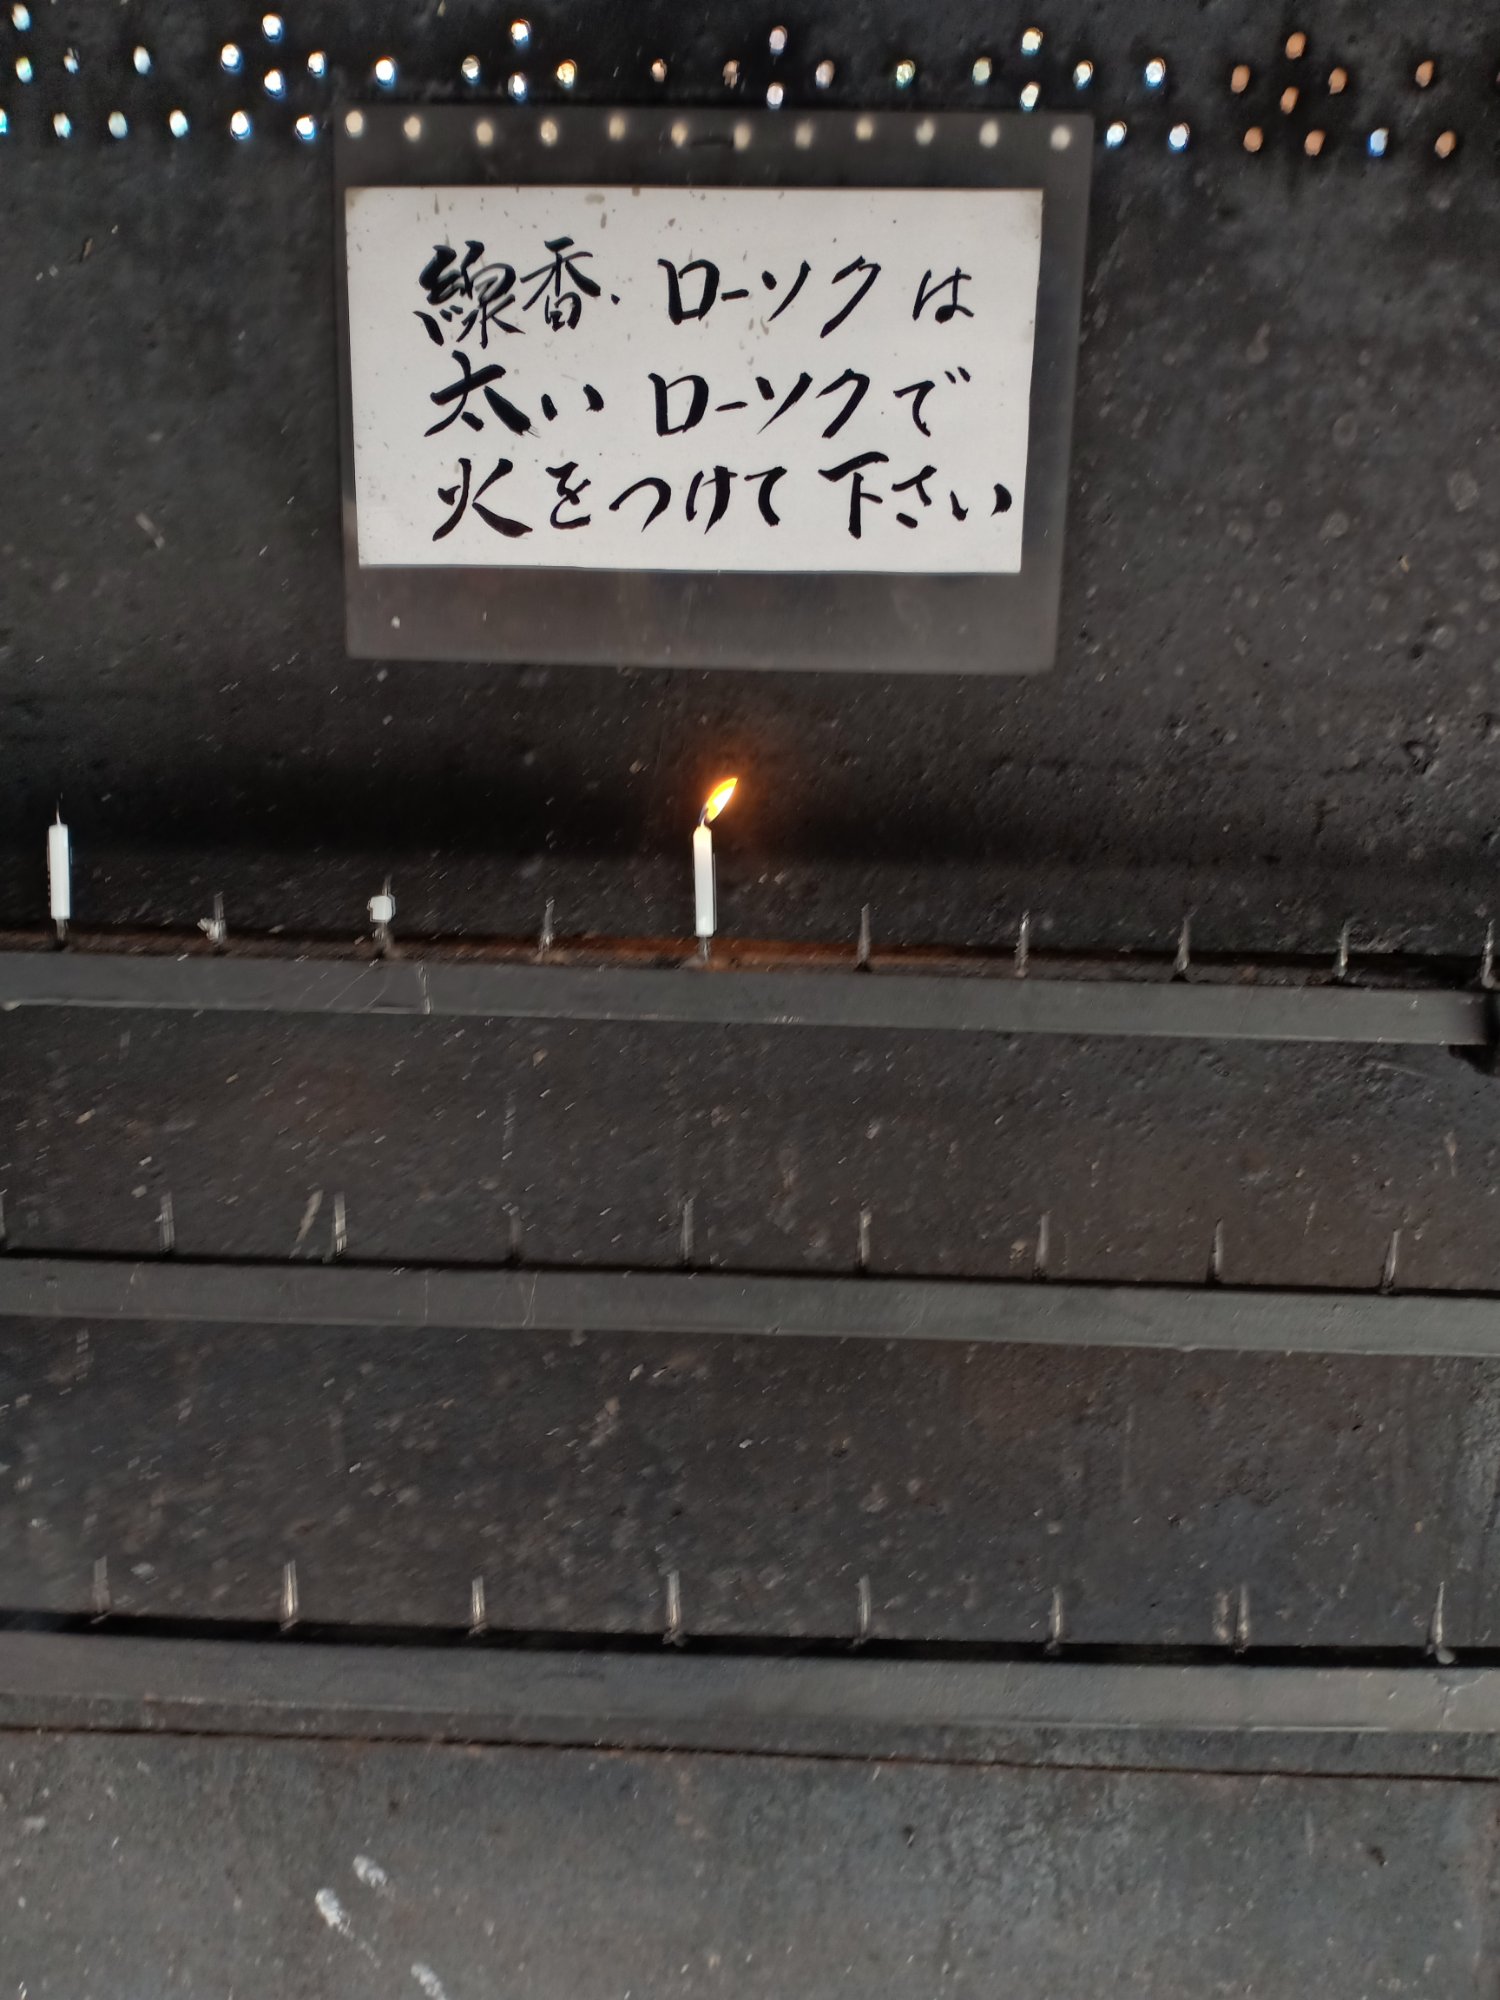 線香、ローソクは
太いローソクで
火をつけて下さい